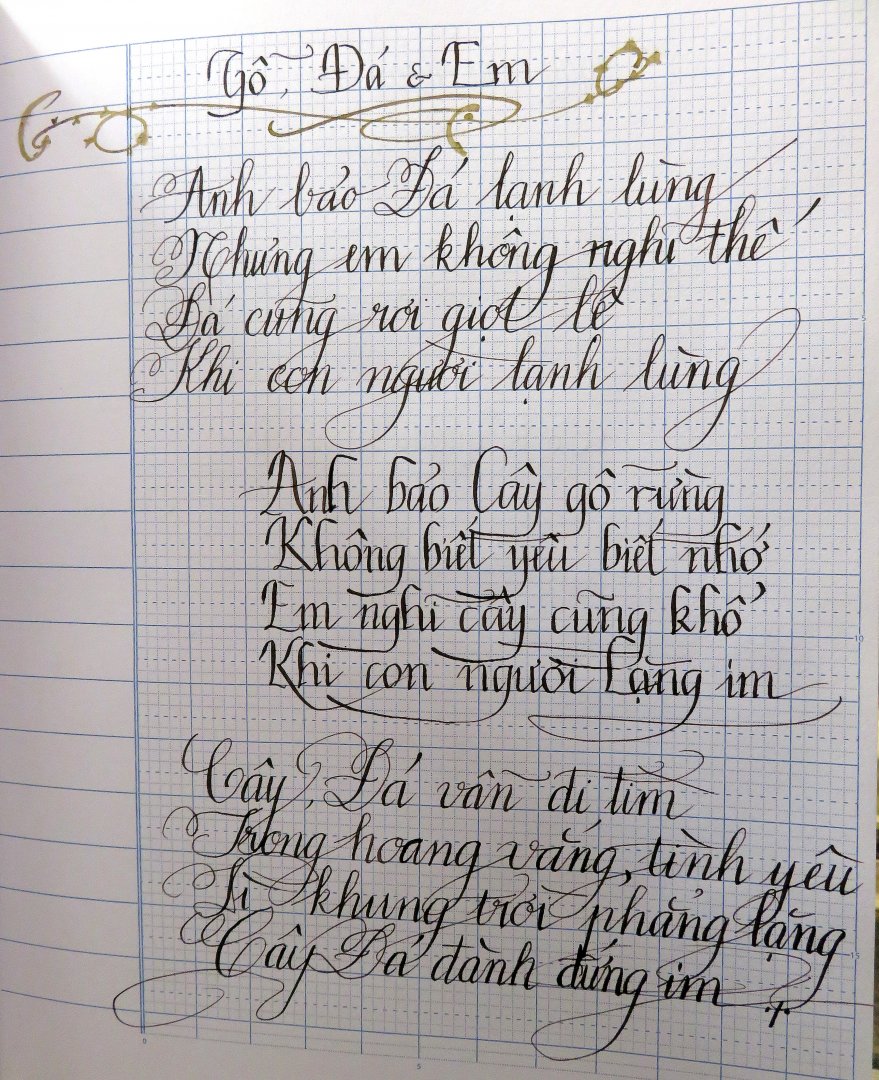 Gỗ, Đá & Em
Anh bảo Đá lạnh lùng
Nhưng em không nghĩ thế
Đá cũng rơi giọt lệ
Khi con người lạnh lùng
Anh bảo Cây gỗ rừng
Không biết yêu biết nhớ
Em nghĩ cây cũng khổ
Khi con người Lặng im
Cây, Đá vẫn đi tìm
Trong hoang vắng, tình yêu
Vì khung trời phẳng lặng
Cây Đá đành đứng im
5
10
15
0
5